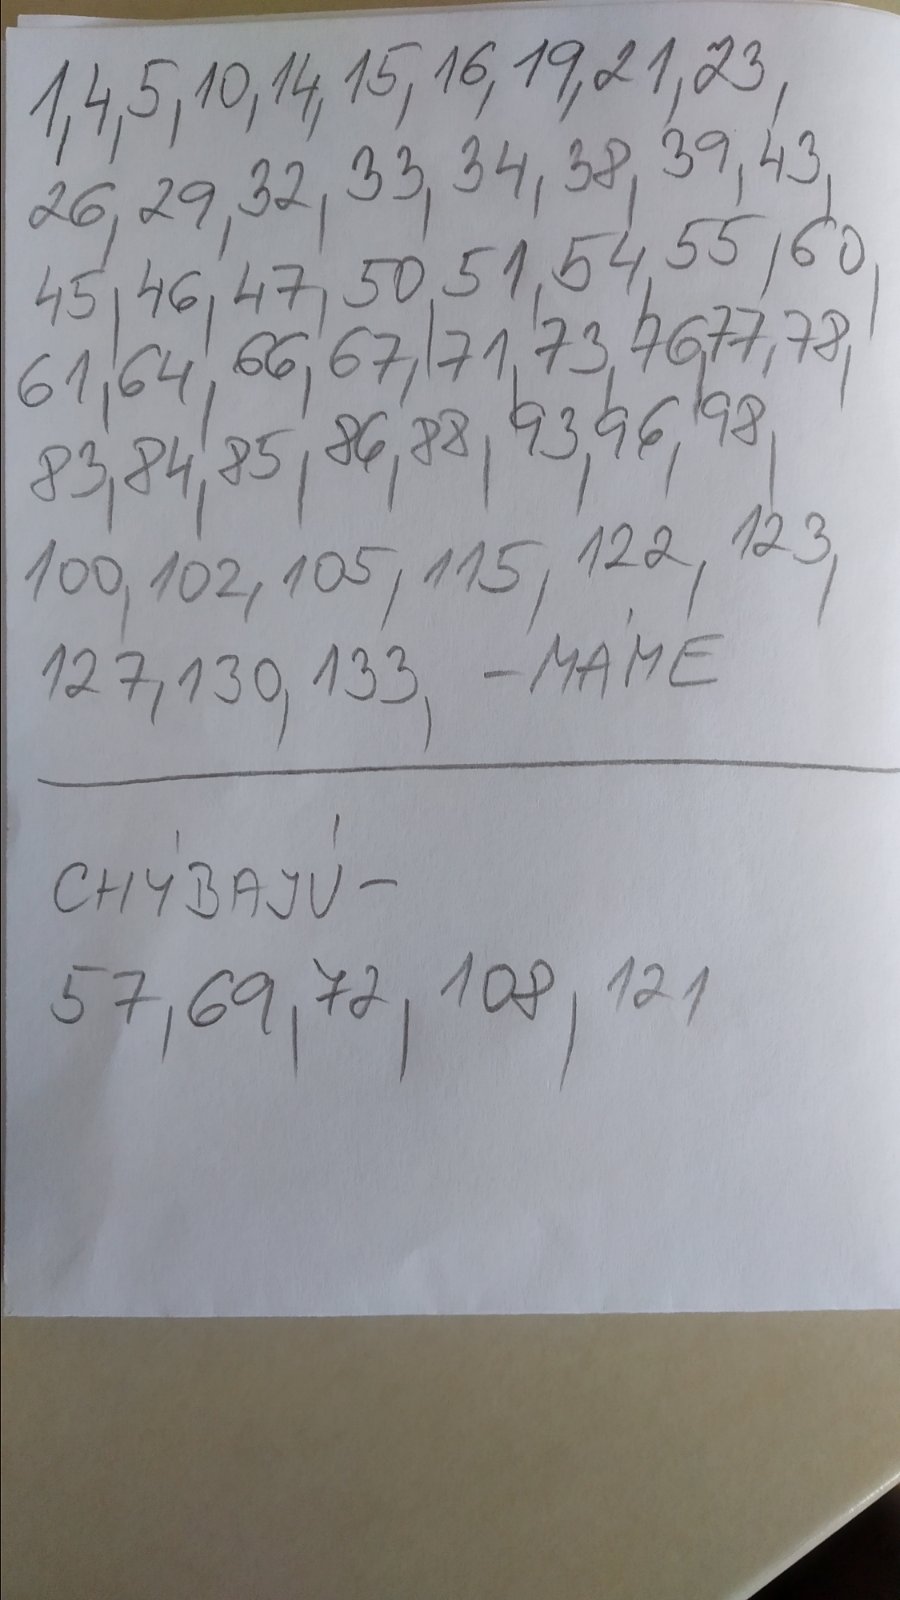 1,4,5,10,14,15,16,19,21,23,
26,29,32,33,34,38,39,43,
45,46,47,50,51,54,55,60,
61,64,66,67,71,73,76,77,78,
83,84,85,86,88,93,96,98,
100,102,105,115,122,123,
127,130,133, -MÁME
CHÝBAJÚ-
57,69,72,108,121